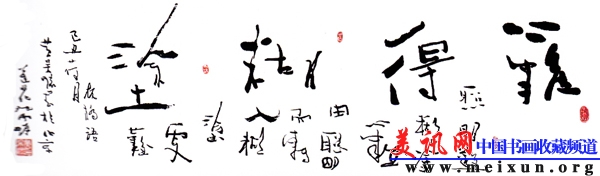 難得糊塗
聰明難
糊塗
難
由聰明
而轉
入糊
塗
更
難
板橋語
己丑
於北京
美讯网
中国书画收藏频道
www.meixun.org